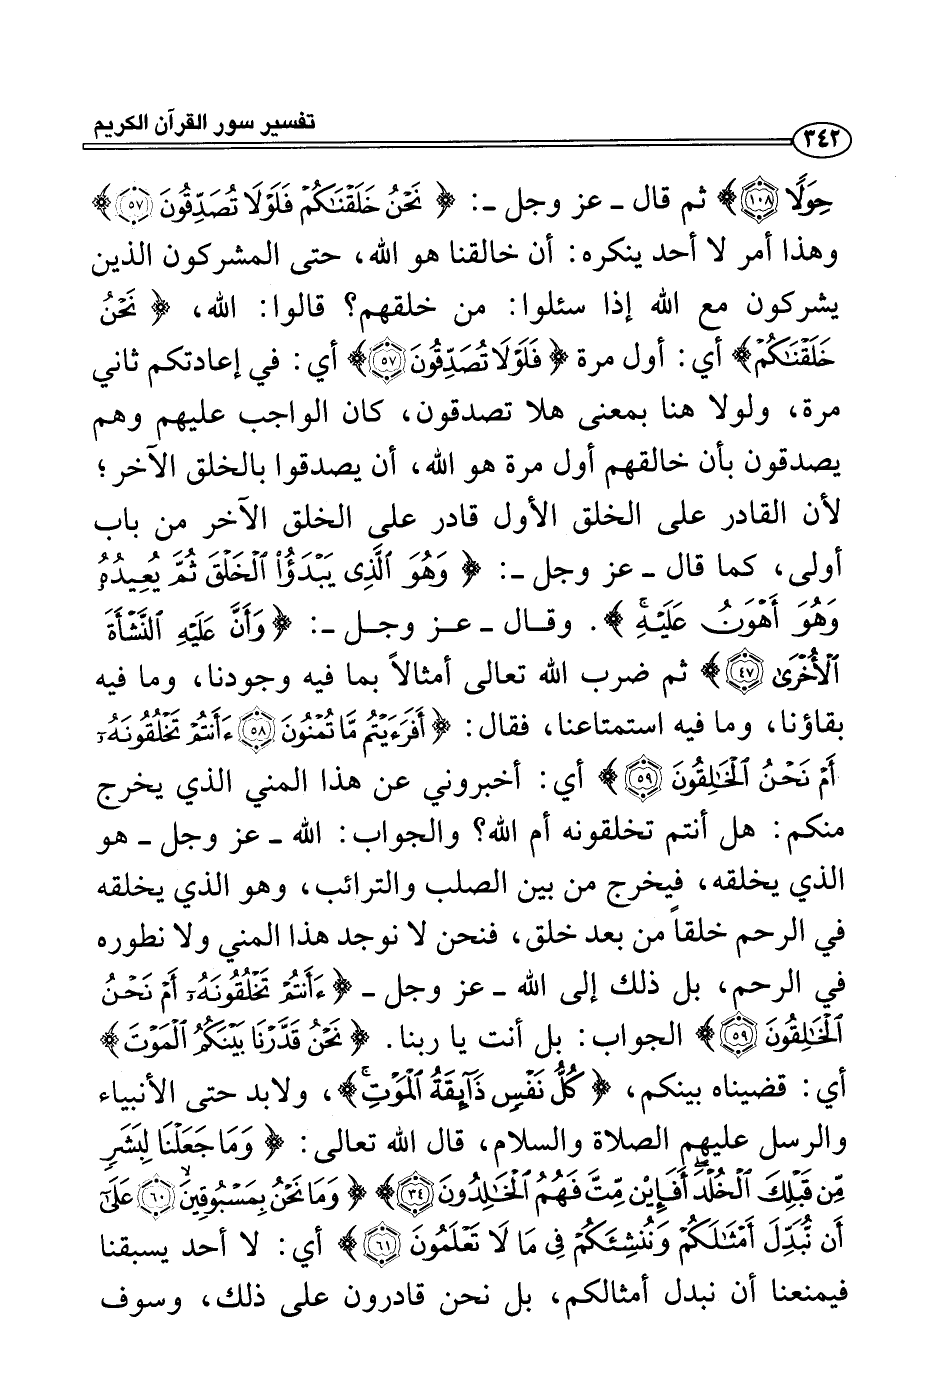 تفسير سور القرآن الكريم
٣٤٢
حِوَلًا ١٠٨﴾ ثم قال ـ عز وجل ـ: ﴿نَحْنُ خَلَقْنَٰكُمْ فَلَوْلَا تُصَدِّقُونَ ٥٧﴾
وهذا أمر لا أحد ينكره: أن خالقنا هو الله، حتى المشركون الذين
يشركون مع الله إذا سئلوا: من خلقهم؟ قالوا: الله، ﴿نَحْنُ
خَلَقْنَٰكُمْ﴾ أي: أول مرة ﴿فَلَوْلَا تُصَدِّقُونَ ٥٧﴾ أي: في إعادتكم ثاني
مرة، ولولا هنا بمعنى هلا تصدقون، كان الواجب عليهم وهم
يصدقون بأن خالقهم أول مرة هو الله، أن يصدقوا بالخلق الآخر؛
لأن القادر على الخلق الأول قادر على الخلق الآخر من باب
أولى، كما قال ـ عز وجل ـ: ﴿وَهُوَ ٱلَّذِى يَبْدَؤُا۟ ٱلْخَلْقَ ثُمَّ يُعِيدُهُۥ
وَهُوَ أَهْوَنُ عَلَيْهِ ۚ﴾. وقال ـ عز وجل ـ: ﴿وَأَنَّ عَلَيْهِ ٱلنَّشْأَةَ
ٱلْأُخْرَىٰ ٤٧﴾ ثم ضرب الله تعالى أمثالاً بما فيه وجودنا، وما فيه
بقاؤنا، وما فيه استمتاعنا، فقال: ﴿أَفَرَءَيْتُم مَّا تُمْنُونَ ٥٨ ءَأَنتُمْ تَخْلُقُونَهُۥٓ
أَمْ نَحْنُ ٱلْخَٰلِقُونَ ٥٩﴾ أي: أخبروني عن هذا المني الذي يخرج
منكم: هل أنتم تخلقونه أم الله؟ والجواب: الله ـ عز وجل ـ هو
الذي يخلقه، فيخرج من بين الصلب والترائب، وهو الذي يخلقه
في الرحم خلقاً من بعد خلق، فنحن لا نوجد هذا المني ولا نطوره
في الرحم، بل ذلك إلى الله ـ عز وجل ـ ﴿ءَأَنتُمْ تَخْلُقُونَهُۥٓ أَمْ نَحْنُ
ٱلْخَٰلِقُونَ ٥٩﴾ الجواب: بل أنت يا ربنا. ﴿نَحْنُ قَدَّرْنَا بَيْنَكُمُ ٱلْمَوْتَ﴾
أي: قضيناه بينكم، ﴿كُلُّ نَفْسٍ ذَآئِقَةُ ٱلْمَوْتِ ۗ﴾، ولابد حتى الأنبياء
والرسل عليهم الصلاة والسلام، قال الله تعالى: ﴿وَمَا جَعَلْنَا لِبَشَرٍ
مِّن قَبْلِكَ ٱلْخُلْدَ ۖ أَفَإِي۟ن مِّتَّ فَهُمُ ٱلْخَٰلِدُونَ ٣٤﴾ ﴿وَمَا نَحْنُ بِمَسْبُوقِينَ ٦٠ عَلَىٰٓ
أَن نُّبَدِّلَ أَمْثَٰلَكُمْ وَنُنشِئَكُمْ فِى مَا لَا تَعْلَمُونَ ٦١﴾ أي: لا أحد يسبقنا
فيمنعنا أن نبدل أمثالكم، بل نحن قادرون على ذلك، وسوف